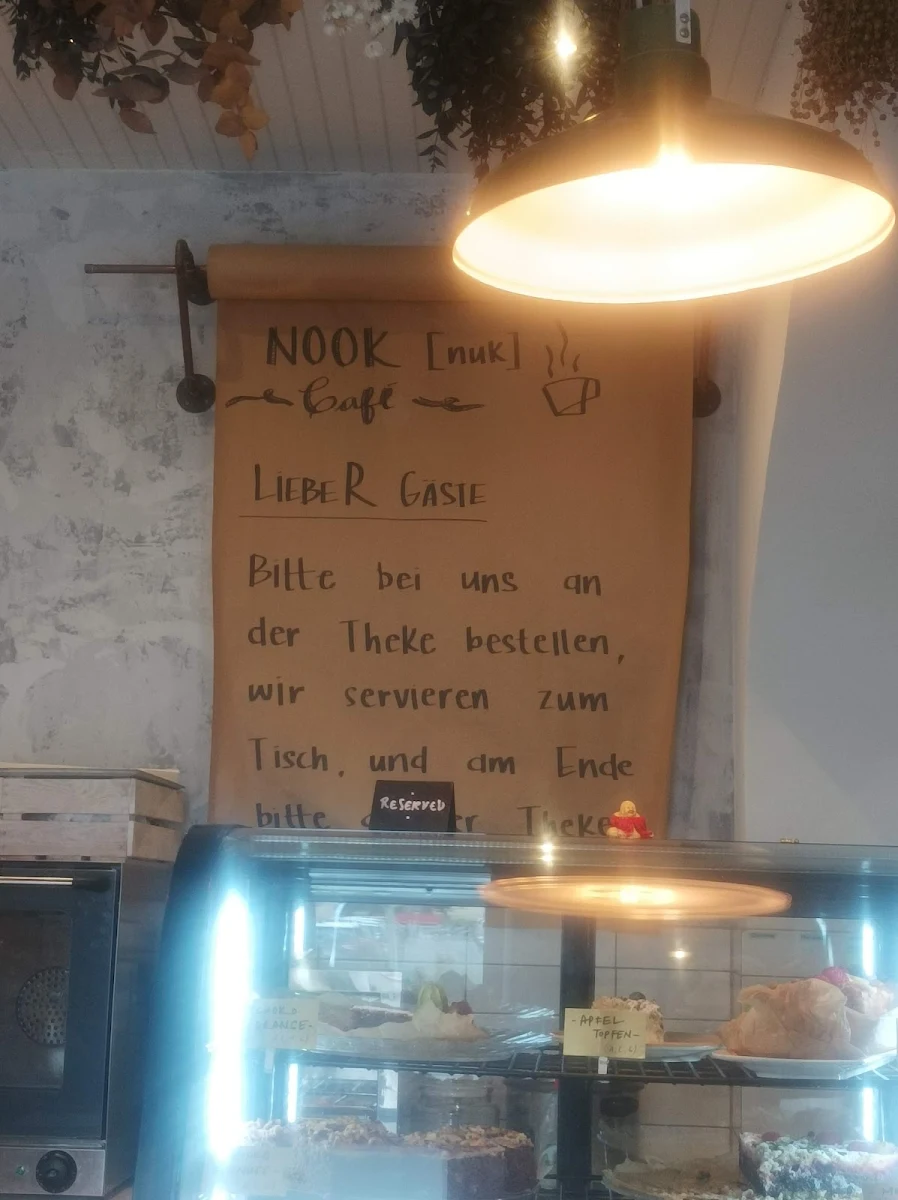 NOOK [nuk]
Café
LIEBER GÄSTE
Bitte bei uns an
der Theke bestellen,
wir servieren zum
Tisch, und am Ende
bitte Theke
RESERVED
-APFEL
TOPFEN-